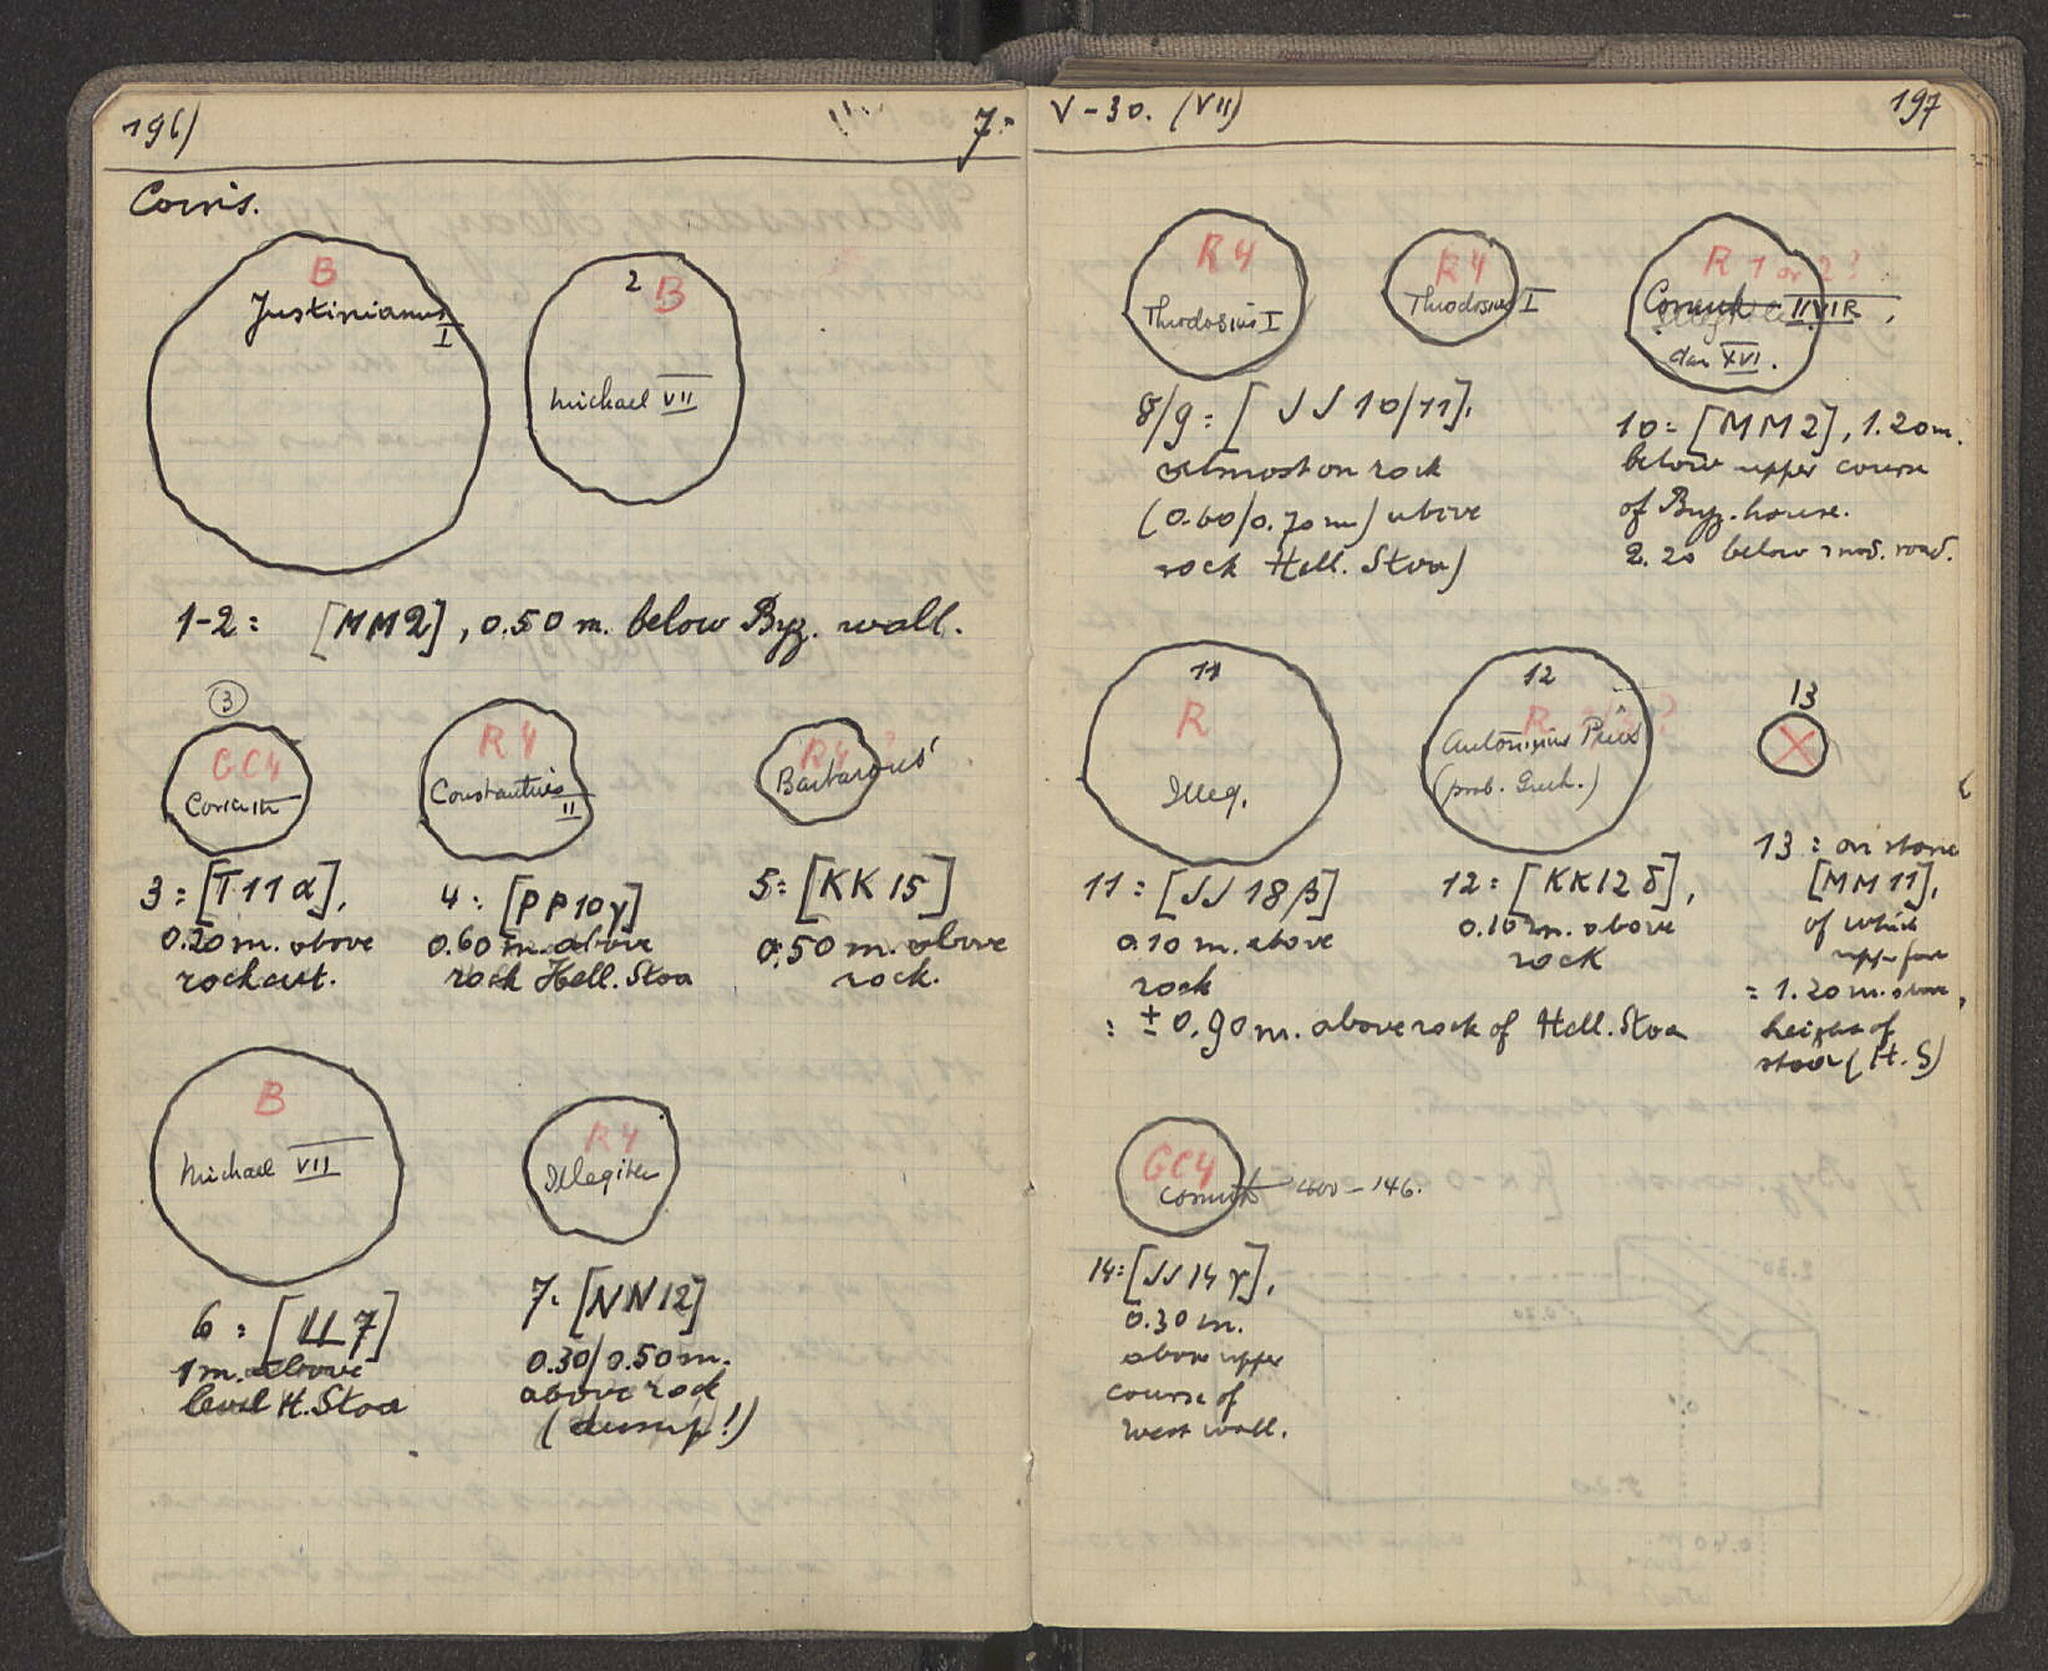 196)
7-
Coins.
B
Justinianus
I
2 B
Michael VII
1-2: [MM2], 0.50 m. below Byz. wall.
3
GC4
Corinth
R4
Constantius
II
R4 ?
Barbarous
3: [T11α],
0.20 m. above
rock cut.
4: [PP10γ]
0.60 m. above
rock Hell. Stoa
5: [KK15]
0.50 m. above
rock.
B
Michael VII
R4
Illegible
6: [LL7]
1 m. above
level H. Stoa
7. [NN12]
0.30/0.50 m.
above rock
(dump!)
V-30. (VII)
197
R4
Theodosius I
R4
Theodosius I
R 1 or 2?
Corinth IIVIR
XVI.
8/9: [JJ10/11],
almost on rock
(0.60/0.70 m) above
rock Hell. Stoa)
10: [MM2], 1.20 m.
below upper course
of Byz. house.
2.20 below mod. road.
11
R
Illeg.
12
R ?
Antoninius Pius
(prob. )
13
X
11: [JJ18β]
0.10 m. above
rock
12: [KK12δ],
0.10 m. above
rock
: ± 0.90 m. above rock of Hell. Stoa
13: on stone
[MM11],
of which
upper face
= 1.20 m. above
height of
stoa (H.S)
GC4
Corinth 400-146.
14: [JJ14γ],
0.30 m.
above upper
course of
west wall.